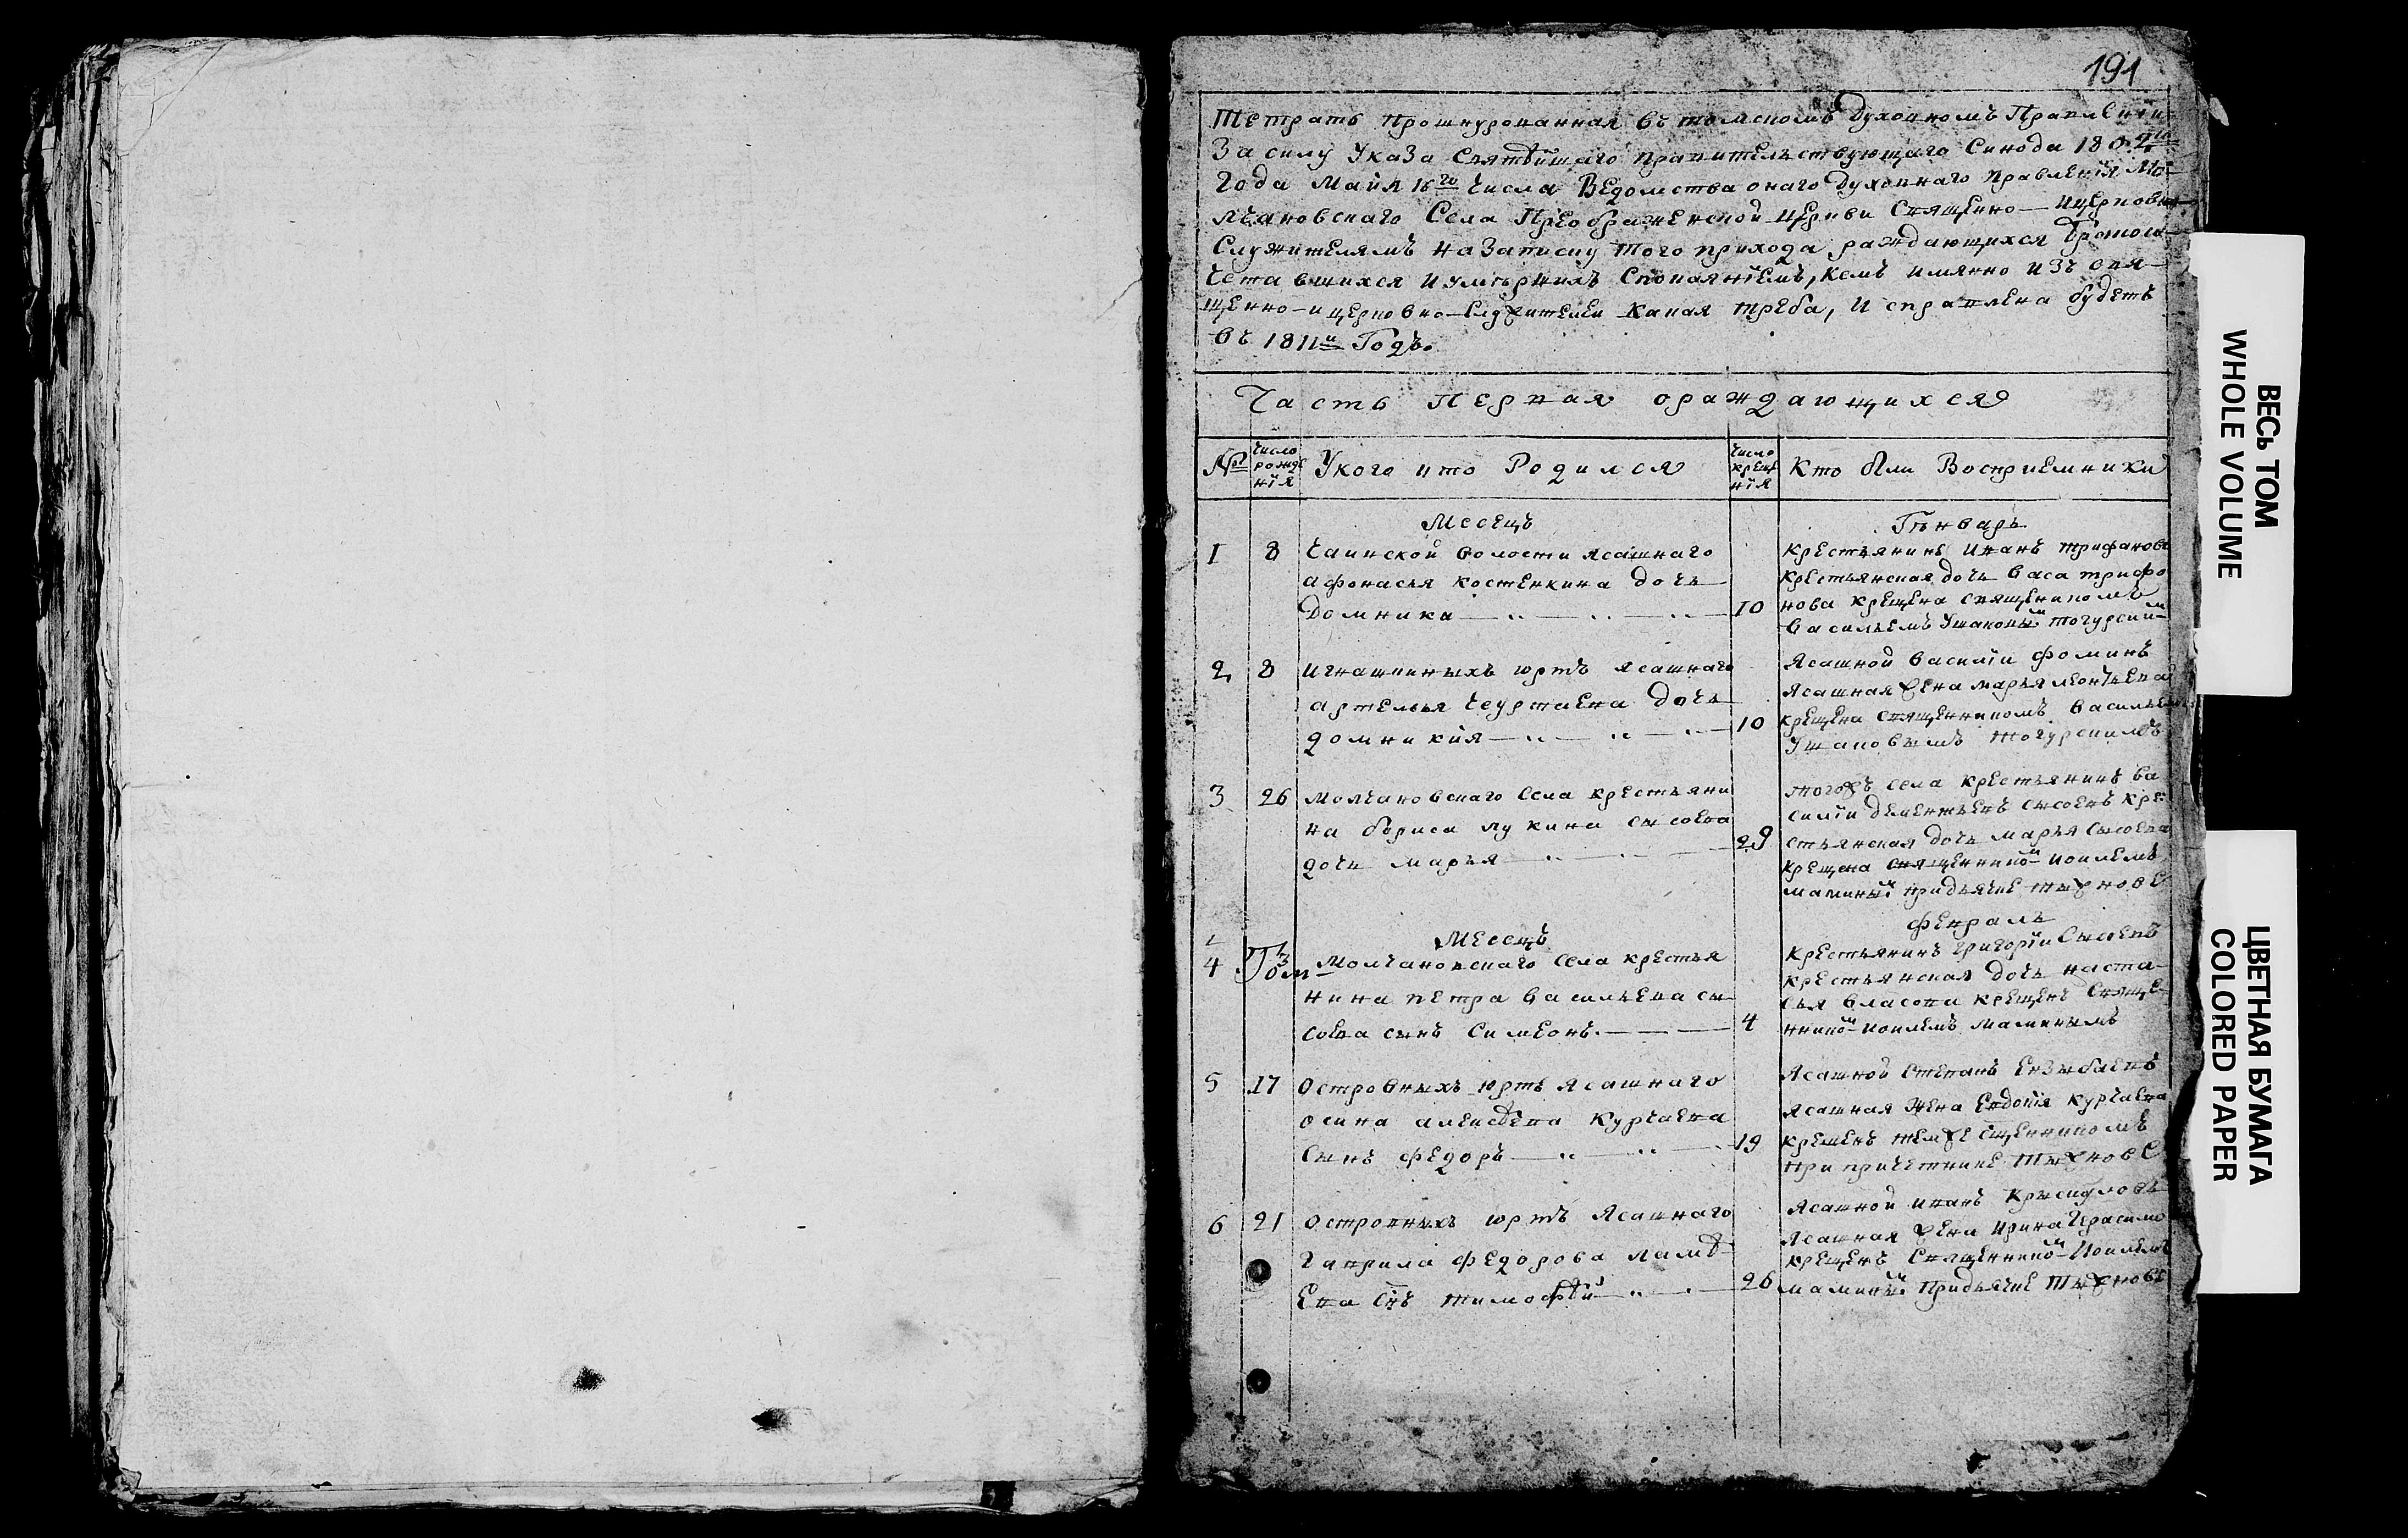 191
Тетрать прошнурованная въ томскомъ Духовномъ Правлении
За силу Указа Святѣйшаго правительствующаго Синода 1802го
года Майя 16го числа Ведомства онаго Духовнаго правления Мо-
лчановскаго Села Преображенской церкви Священно—ицерковно
Служителямъ на Записку того прихода раждающихся бракосо-
четавшихся иумѣрших Споказнїемъ, Кемъ имянно изъ свя-
щенно—ицерковно—служителей Какая треба, исправлена будетъ
въ 1811м Годѣ.
Часть Первая ораждающихся
№ Число рожде нїя Укого кто Родился Число креще нїя Кто были Восприемники
Месецъ Генварь
1 8 Чаинской волости ясашнаго
афонасья костенкина дочь
Домника 10
крестьянинъ Иванъ трифановъ
крестьянская дочь васа трифо
нова крещена священикомъ
василиемъ Ушаковым тогурским
2 8 Игнашкиныхъ юртъ ясашнаго
артемья чеуртаева дочь
домникия 10
Ясашной василїи фоминъ
ясашная жена марья леонтьева
крещена священникомъ василием
Ушаковымъ тогурскимъ
3 26 молчановскаго села крестьяни
на бориса лукина сысоева
дочь марья 29
тогожъ села крестьянинъ ва
силїи дементьевъ сысоевъ кре
стьянская дочь марья сысоева
крещена священником иоилемъ
маминым придьячке тыжнове
Месецъ февраль
4 Гом 3 Молчановскаго села крестья
нина петра васильева сы
соева сынъ Симеонъ 4
крестьянинъ григорїи Сысоевъ
крестьянская дочь наста-
сья власова крещенъ Свяще
нником иоилемъ маминымъ
5 17 Островныхъ юртъ ясашнаго
осипа алексѣева Курчаева
сынъ федоръ 19
Ясашной степанъ Ензыбаевъ
ясашная жена Евдокїя курчаева
крещенъ темже сщенникомъ
при причетнике тыжнове
6 21 островныхъ юртъ ясашнаго
гаврила федорова ламѣ-
Ева снъ тимофѣй 26
Ясашной иванъ
ясашная жена ирина Герасимо
крещенъ священником Иоилемъ
маминым придьячке тыжнове
ВЕСЬ ТОМ
WHOLE VOLUME
ЦВЕТНАЯ БУМАГА
COLORED PAPER